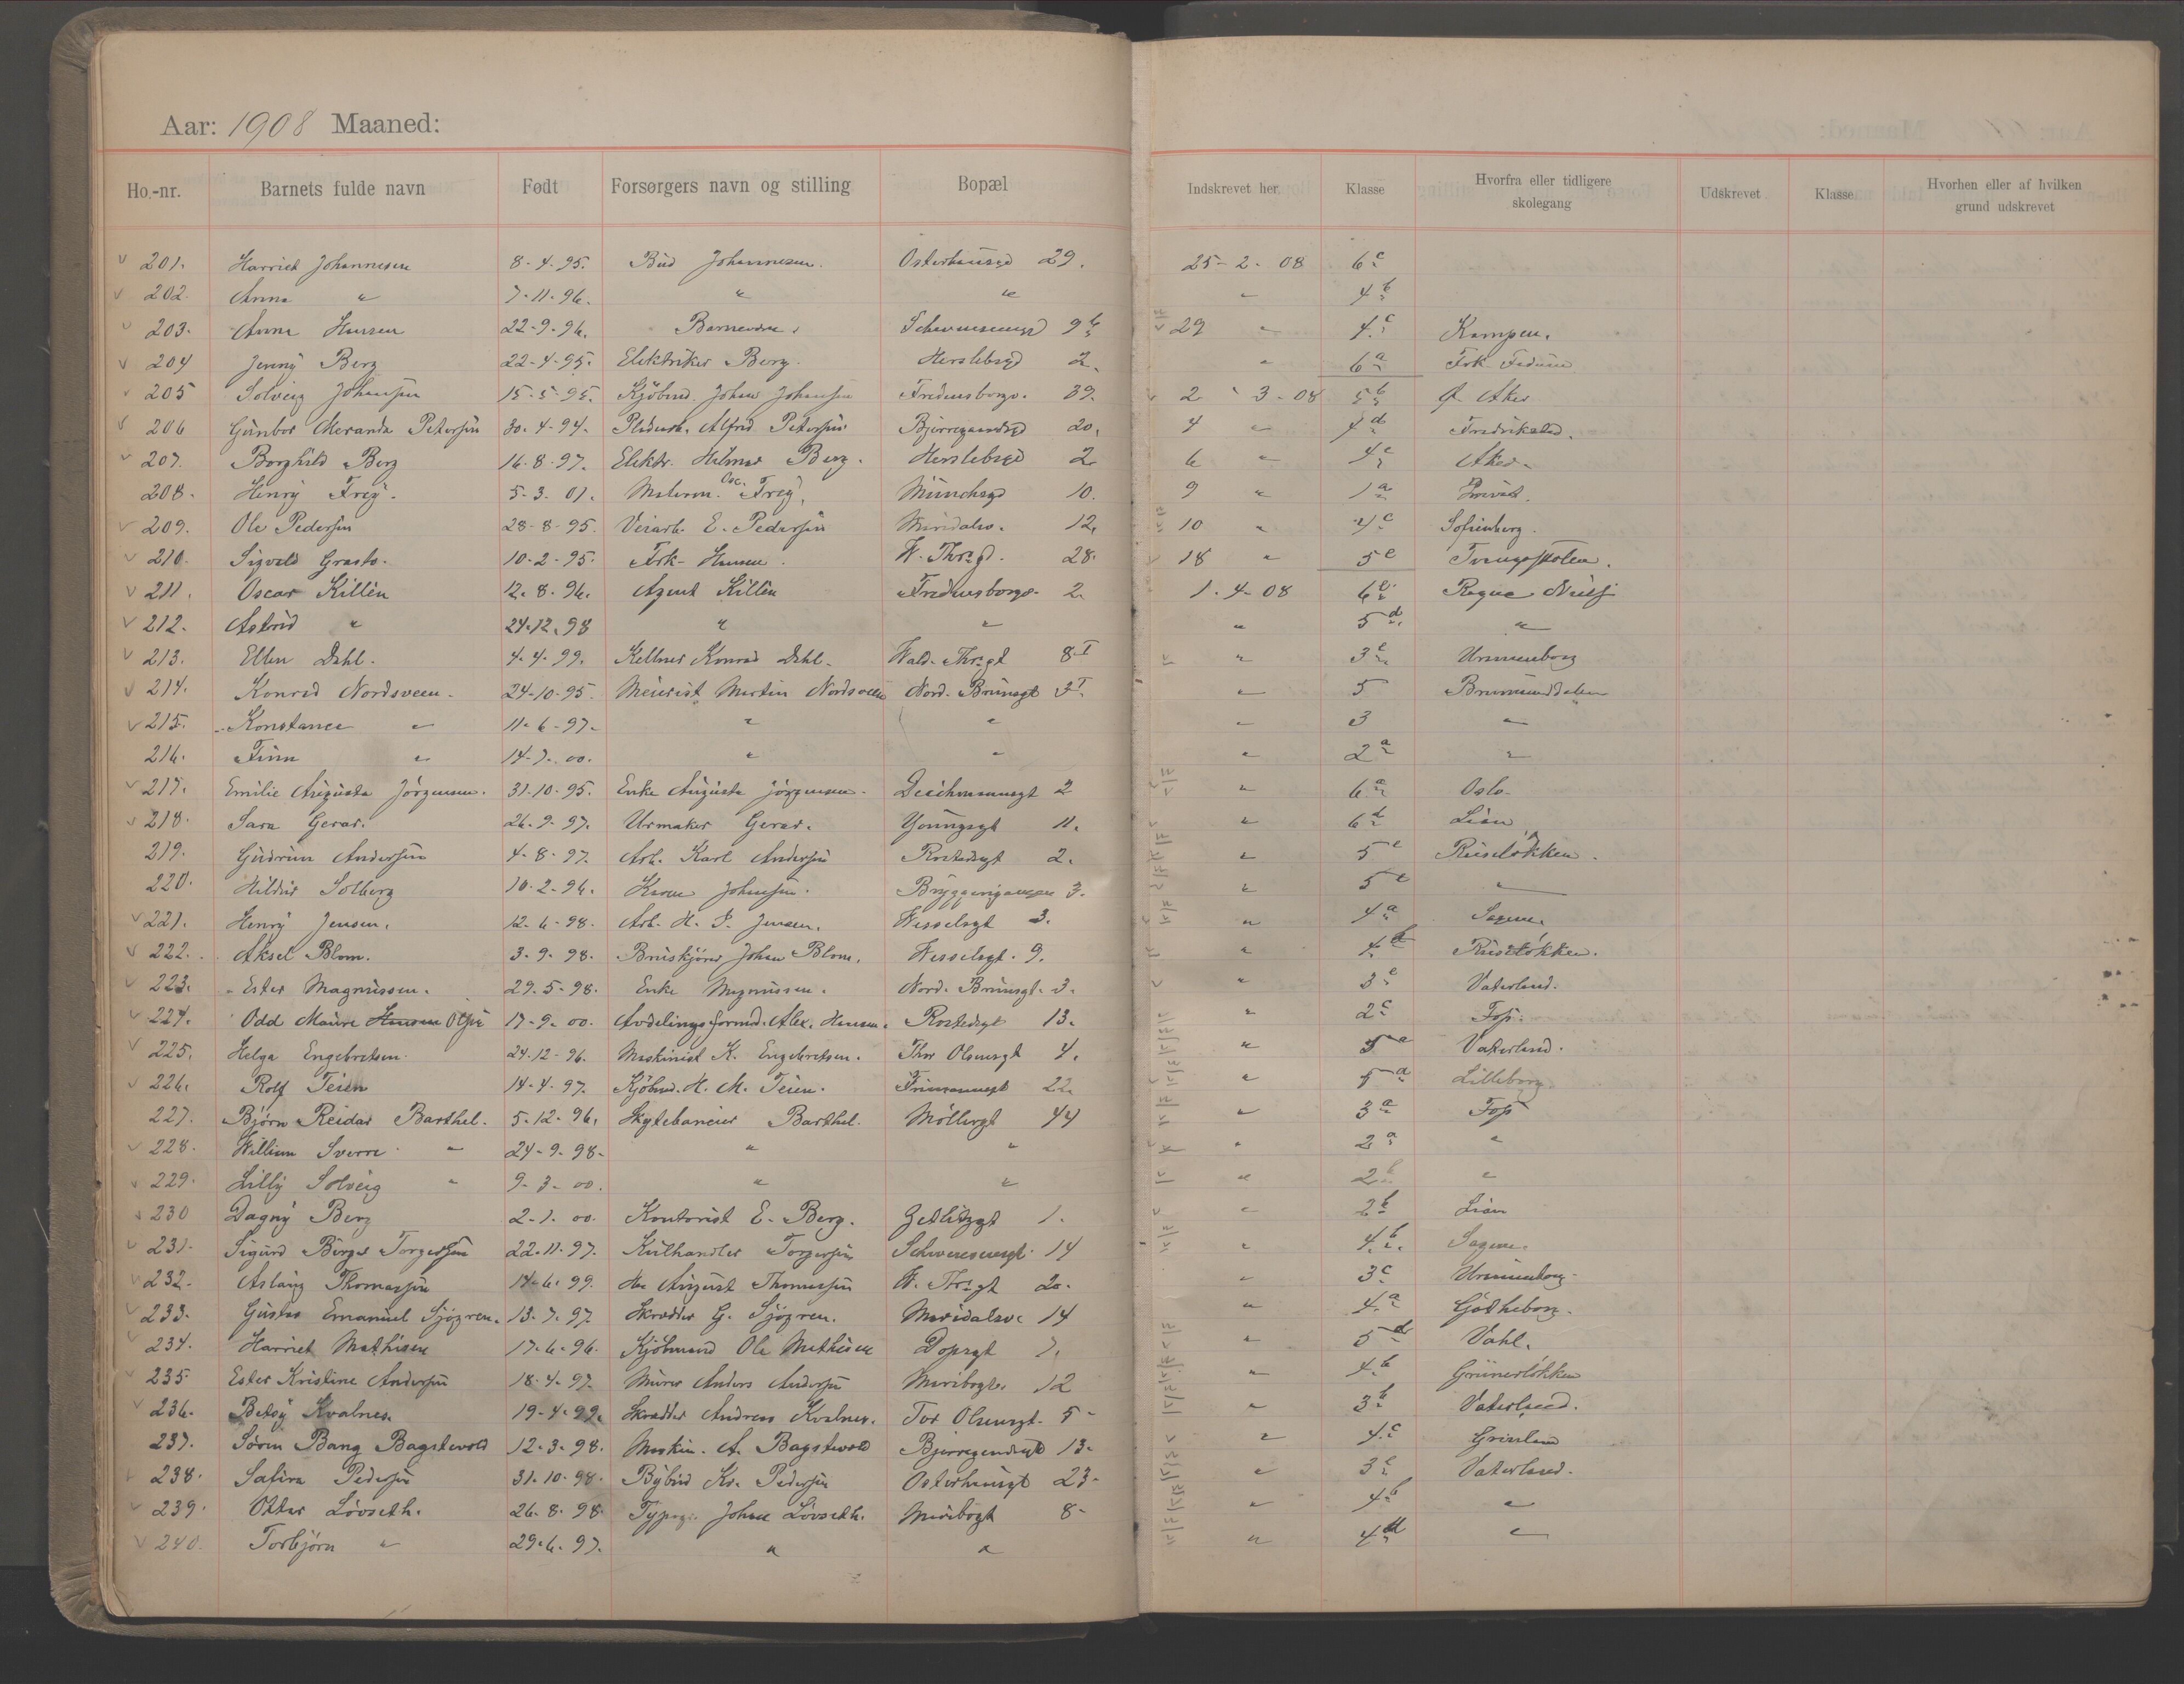 Aar: 1908 Maaned:
Ho.-nr. Barnets fulde navn Født Forsørgers navn og stilling Bopæl Indskrevet her Klasse Hvorfra eller tidligere skolegang Udskrevet Klasse Hvorhen eller af hvilken grund udskrevet
201. Harriet Johannesen 8-4-95. Bud Johannesen. Osterhausgd 29. 25-2-08 6c
202. Anna " 7-11-96. " " " 4b
203. Anna Hansen 22-9-96. 9b 29 " 4c Kampen.
204 Jenny Berg 22-4-95. Elektriker Berg. Herslebsgd 2. " 6a Frk.
205 Solveig Johansen 15-5-95. Kjöbmd. Johan Johansen Fredensborgv. 39. 2 " 3-08 5b Ø. Aker
206 Gunbor Meranda Petersen 30-4-94. Alfred Petersen Bjerregaardsgd 20. 4 " 4d Fredrikstad.
207. Borghild Berg 16-8-97. Elektr. Hilmar Berg. Herslebsgd 2 6 " 4c Aker.
208. Henry Frey. 5-3-01. Osc. Frey. Münchsgd 10. 9 " 1a Privat.
209. Ole Pedersen 28-8-95. Veiarb. E. Pedersen Maridalsv. 12. 10 " 4c Sofienberg.
210. Sigvald Grasto. 10-2-95. Frk. Hansen. W. Thr.gd. 28. 18 " 5e Tvangsskolen.
211. Oscar Killén 12-8-96. Agent Killén Fredensborgv. 2. 1-4-08 6e Ragna Niels
212. Astrid " 24-12-98 " " " 5d "
213. Ellen Dahl. 4-4-99. Kellner Konrad Dahl. Wald. Thr.gt 8 I " 3e Uranienborg
214. Konrad Nordsveen. 24-10-95. Meierist Martin Nordsveen Nord. Brunsgt 3 I. " 5 Brumunddalen
215. Konstance " 11-6-97. " " " 3 "
216. Finn " 14-7-00. " " " 2a "
217. Emilie Augusta Jörgensen. 31-10-95. Enke Augusta Jörgensen. Deichmansgt 2 " 6a Oslo.
218. Sara Geras. 26-9-97. Urmaker Geras. Youngsgt 11. " 6d Lian
219. Gudrun Andersen 4-8-97. Arb. Karl Andersen Rostedsgt 2. " 5e Ruselökken.
220. Hildur Solberg 10-2-96. Karen Johnsen. Bryggerigangen 3. " 5e "
221. Henry Jensen. 12-6-98. Arb. H. P. Jensen. Wesselsgt 3. " 4a Sagene.
222. Aksel Blom. 3-9-98. Bruskjörer Johan Blom. Wesselsgt. 9. " 4b Ruselökken.
223. Ester Magnussen. 29-5-98. Enke Magnussen. Nord. Brunsgt. 3. " 3e Vaterland.
224. Odd Maure Hansen Olsen 17-9-00. Avdelingsformd. Alex. Hansen. Rostedsgt 13. " 2c Foss.
225. Helga Engebretsen. 24-12-96. Maskinist K. Engebretsen. Thor Olsensgt 4. " 5e Vaterland.
226. Rolf Teien 14-4-97. Kjöbmd. H. M. Teien. Frimannsgt 22. " 5a Lilleborg
227. Björn Reidar Barthel. 5-12-96. Skytebaneier Barthel. Möllergt 44 " 3a Foss
228. William Sverre " 24-9-98. " " " 2a "
229. Lilly Solveig " 9-3-00. " " " 2b "
230 Dagny Berg 2-1-00. Kontorist E. Berg. Zetlitzgt 1. " 2b Lian
231. Sigurd Birger Torgersen 22-11-97. Kulhandler Torgersen Schwensensgt. 14 " 4b. Sagene.
232. Aslaug Thomassen 14-6-99. August Thomassen W. Thr.gt 20. " 3c Uranienborg.
233. Gustav Emanuel Sjögren. 13-7-97 Skrædder G. Sjögren. Maridalsv. 14 " 4a Götheborg.
234. Harriet Mathisen 17-6-96. Kjöbmand Ole Mathisen Dopsgt 7. " 5d Vahl.
235 Ester Kristine Andersen 18-4-97. Murer Anders Andersen Maribogt. 12 " 4b Grünerlökken
236. Betsy Kvalnes 19-4-99. Skrædder Andreas Kvalnes. Tor Olsensgt. 5 " 3b Vaterland.
237. Sören Bang Bagstevold 12-3-98. Maskin. A. Bagstevold Bjerregaardsgt 13. " 4c
238. Pedersen 31-10-98. Bybud Kr. Pedersen Osterhausgt 23. " 3e Vaterland.
239. Ottar Lövseth. 26-8-98. Typogr. Johan Lövseth. Maribogt 8. " 4b "
240. Torbjörn " 29-6-97. " " " 4d "